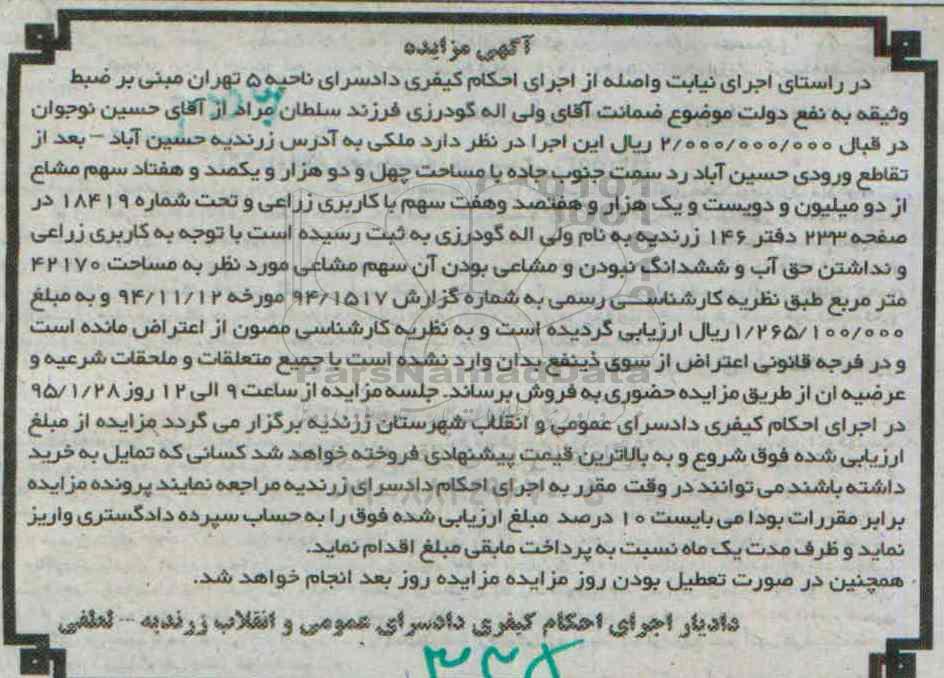 آگهی مزایده
در راستای اجرای نیابت واصله از اجرای احکام کیفری دادسرای ناحیه ۵ تهران مبنی بر ضبط
وثیقه به نفع دولت موضوع ضمانت آقای ولی اله گودرزی فرزند سلطان مراد از آقای حسین نوجوان
در قبال ۲/۰۰۰/۰۰۰/۰۰۰ ریال این اجرا در نظر دارد ملکی به آدرس زرندیه حسین آباد – بعد از
تقاطع ورودی حسین آباد رد سمت جنوب جاده با مساحت چهل و دو هزار و یکصد و هفتاد سهم مشاع
از دو میلیون و دویست و یک هزار و هفتصد وهفت سهم با کاربری زراعی و تحت شماره ۱۸۴۱۹ در
صفحه ۲۳۳ دفتر ۱۴۶ زرندیه به نام ولی اله گودرزی به ثبت رسیده است با توجه به کاربری زراعی
و نداشتن حق آب و ششدانگ نبودن و مشاعی بودن آن سهم مشاعی مورد نظر به مساحت ۴۲۱۷۰
متر مربع طبق نظریه کارشناسی رسمی به شماره گزارش ۹۴/۱۵۱۷ مورخه ۹۴/۱۱/۱۲ و به مبلغ
۱/۲۶۵/۱۰۰/۰۰۰ ریال ارزیابی گردیده است و به نظریه کارشناسی مصون از اعتراض مانده است
و در فرجه قانونی اعتراض از سوی ذینفع بدان وارد نشده است با جمیع متعلقات و ملحقات شرعیه و
عرضیه ان از طریق مزایده حضوری به فروش برساند. جلسه مزایده از ساعت ۹ الی ۱۲ روز ۹۵/۱/۲۸
در اجرای احکام کیفری دادسرای عمومی و انقلاب شهرستان زرندیه برگزار می گردد مزایده از مبلغ
ارزیابی شده فوق شروع و به بالاترین قیمت پیشنهادی فروخته خواهد شد کسانی که تمایل به خرید
داشته باشند می توانند در وقت مقرر به اجرای احکام دادسرای زرندیه مراجعه نمایند پرونده مزایده
برابر مقررات بودا می بایست ۱۰ درصد مبلغ ارزیابی شده فوق را به حساب سپرده دادگستری واریز
نماید و ظرف مدت یک ماه نسبت به پرداخت مابقی مبلغ اقدام نماید.
همچنین در صورت تعطیل بودن روز مزایده مزایده روز بعد انجام خواهد شد.
دادیار اجرای احکام کیفری دادسرای عمومی و انقلاب زرندیه – لطفی
ParsNamadData